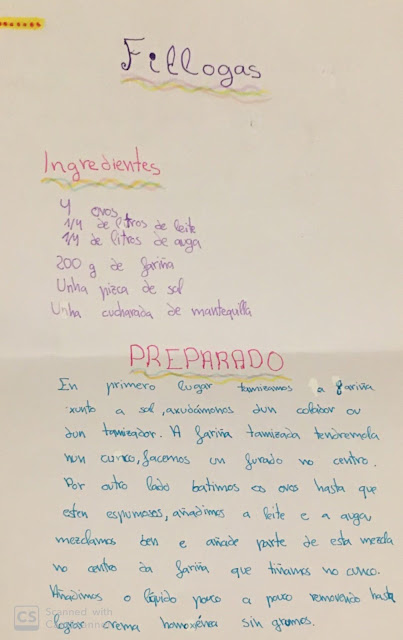 Fillogas
Ingredientes
4 ovos
1/4 de litros de leite
1/4 de litros de auga
200 g de fariña
Unha pizca de sal
Unha cucharada de mantequilla
PREPARADO
En primero lugar tamizamos a fariña
xunto a sal, axudámonos dun colador ou
dun tamizador. A fariña tamizada tendremola
nun cunco, facemos un furado no centro.
Por outro lado batimos os ovos hasta que
esten espumosos, añadimos a leite e a auga
mezclamos ben e añade parte de esta mezcla
no centro da fariña que tiñamos no cunco.
Añadimos o líquido pouco a pouco removendo hasta
lograr crema homoxénea sin grumos.
CS Scanned with